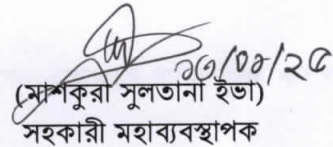 ১৩/০১/২৫
(মাশকুরা সুলতানা ইভা)
সহকারী মহাব্যবস্থাপক